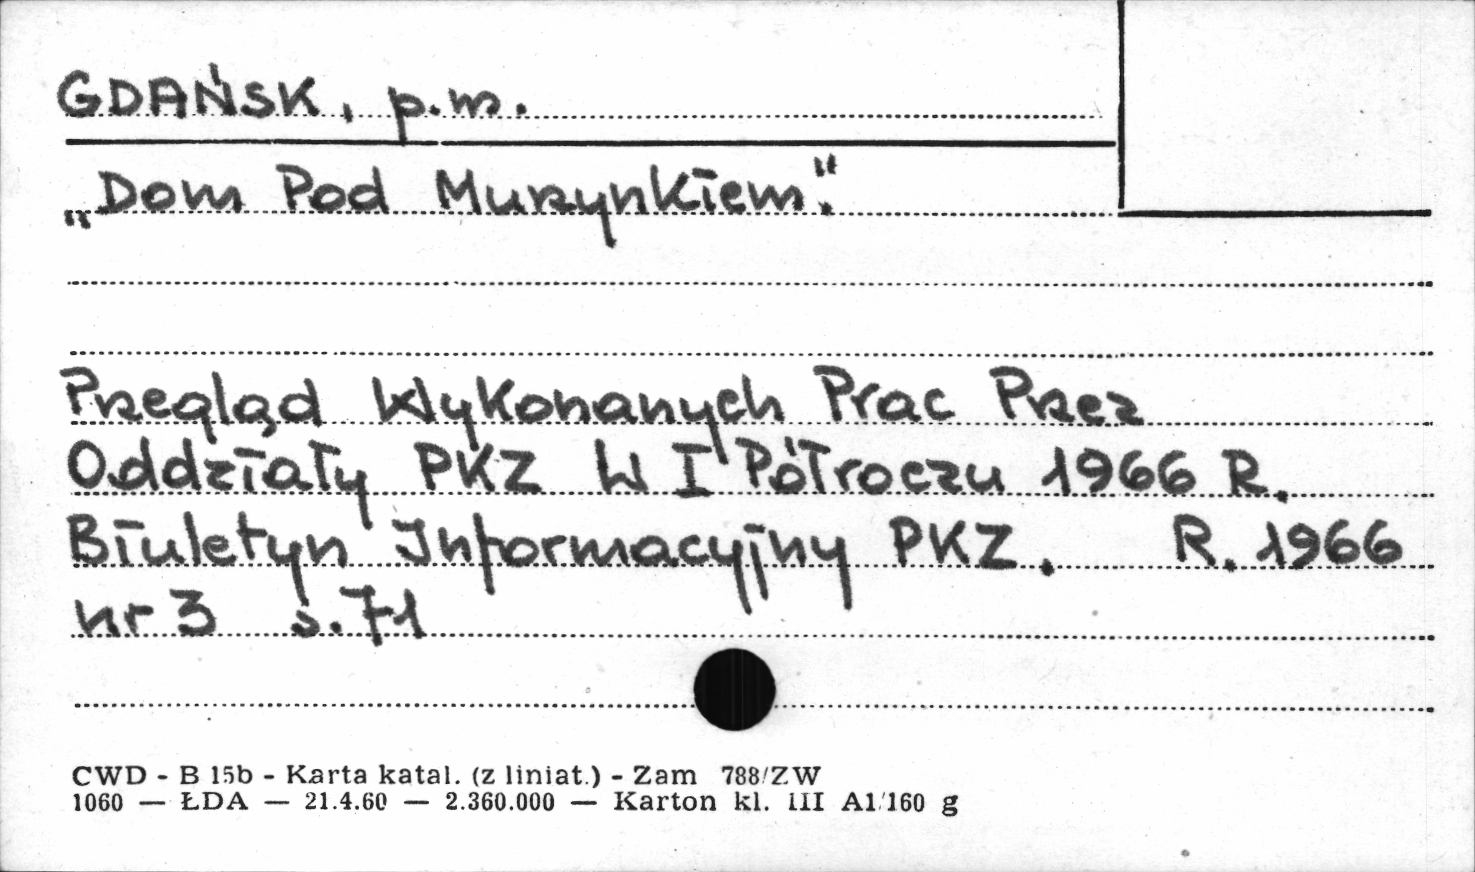 GDAŃSK, p.m.
„Dom Pod Murzynkiem".
Przegląd Wykonanych Prac Przez
Oddziały PKZ W I Półroczu 1966 R.
Biuletyn Informacyjny PKZ. R. 1966
nr 3 s. 71
CWD - B 15b - Karta katal. (z liniat.) - Zam 788/ZW
1060 — ŁDA — 21.4.60 — 2.360.000 — Karton kl. III A1/160 g